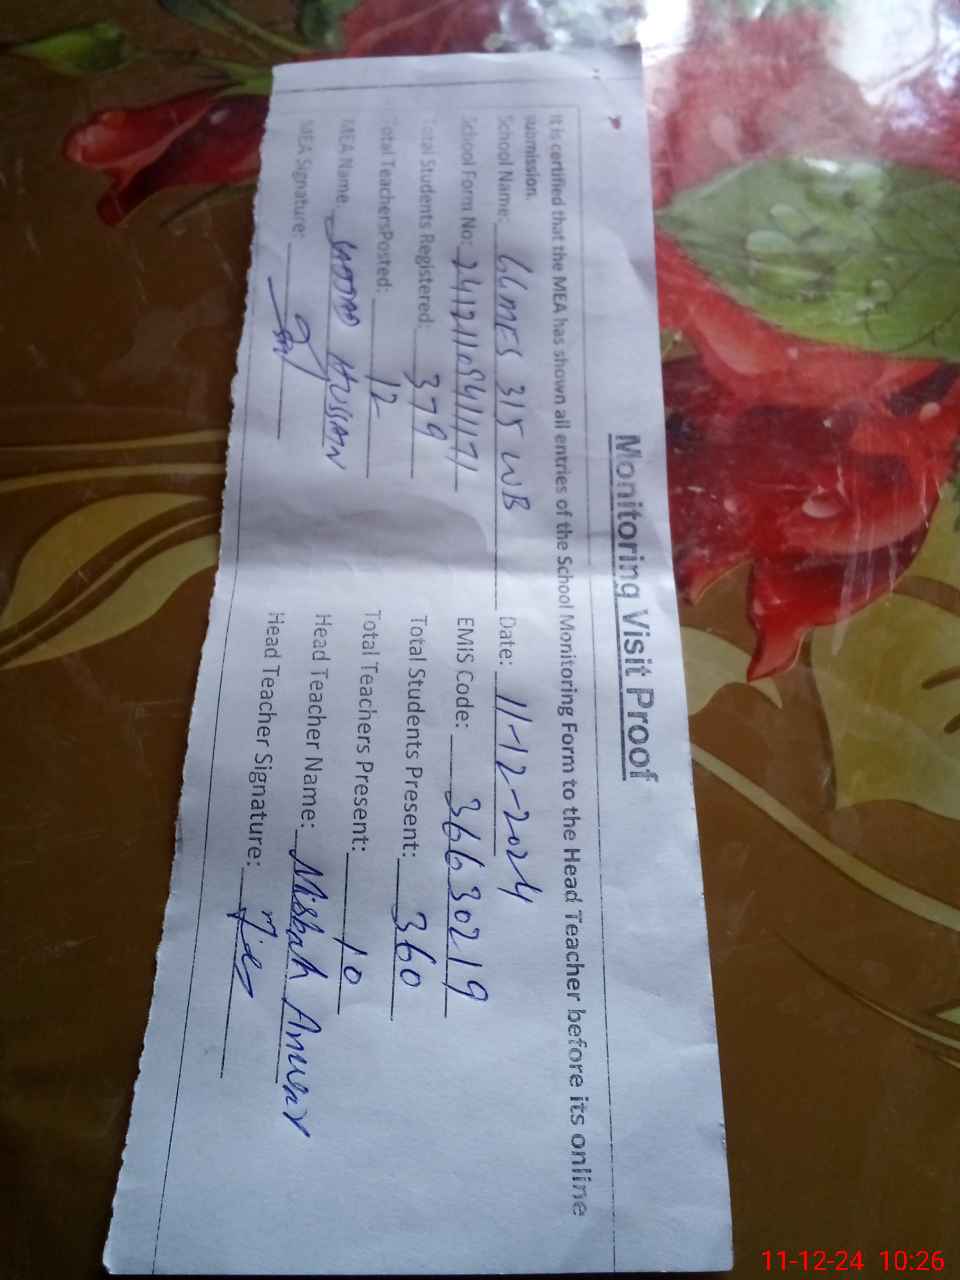 Monitoring Visit Proof
It is certified that the MEA has shown all entries of the School Monitoring Form to the Head Teacher before its online
submission.
School Name: GGMES 315 WB Date: 11-12-2024
School Form No: EMIS Code: 36630219
Total Students Registered: 379 Total Students Present: 360
Total TeachersPosted: 12 Total Teachers Present: 10
MEA Name: SAJJAD HUSSAIN Head Teacher Name: Misbah Anwar
MEA Signature: Head Teacher Signature:
11-12-24 10:26